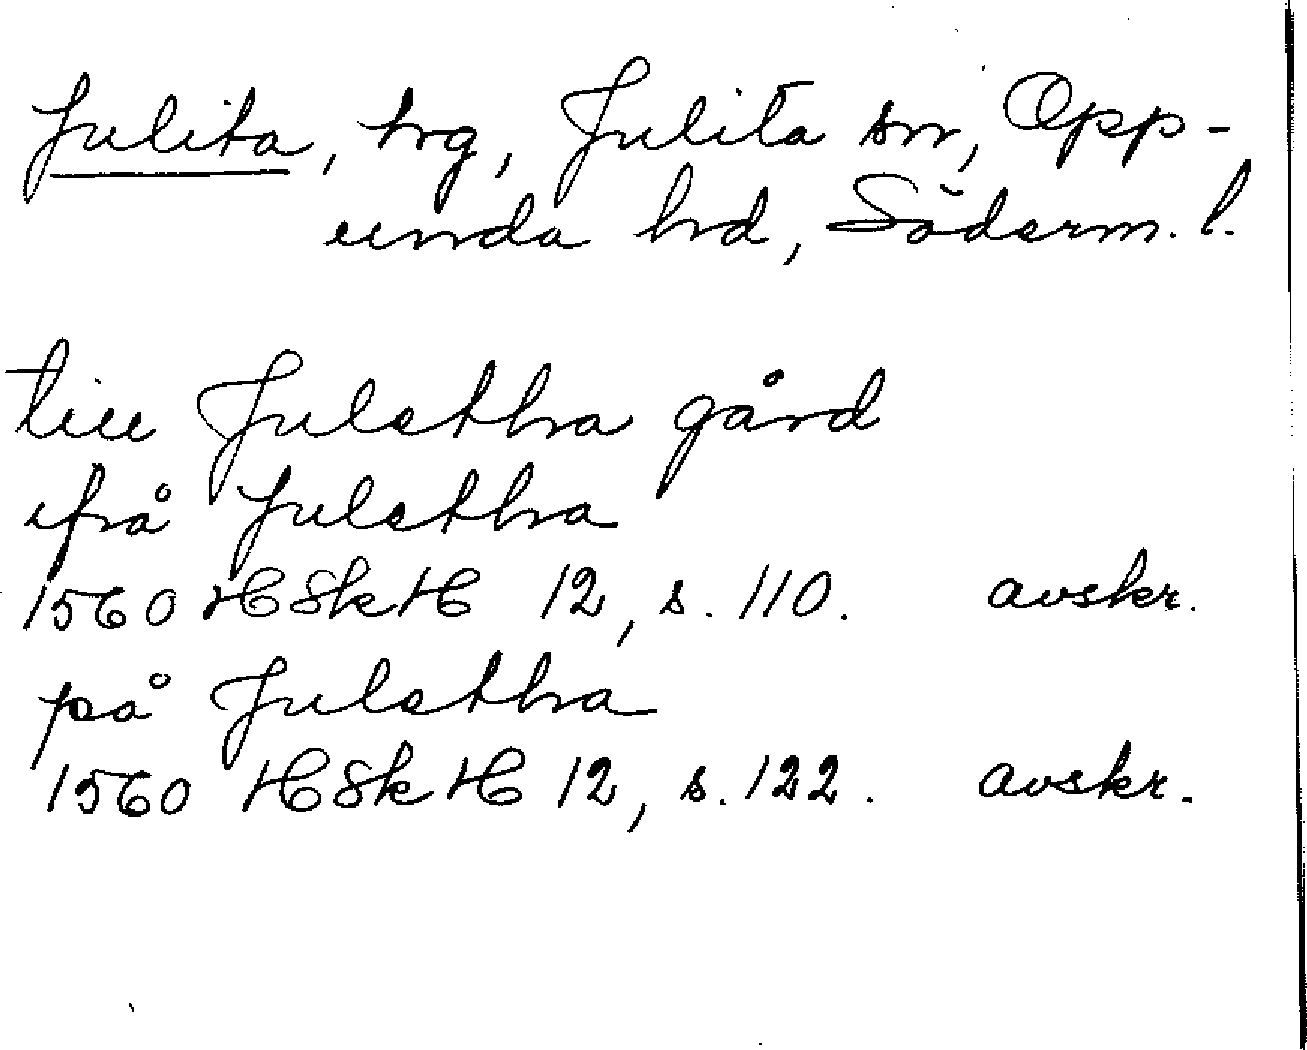 Julita, hrg, Julita sn, Opp-
unda hd, Söderm. l.
till Juletha gård
ifrå Juletha
1560 HSkH 12, s. 110. avskr.
på Juletha
1560 HSkH 12, s. 122. avskr.